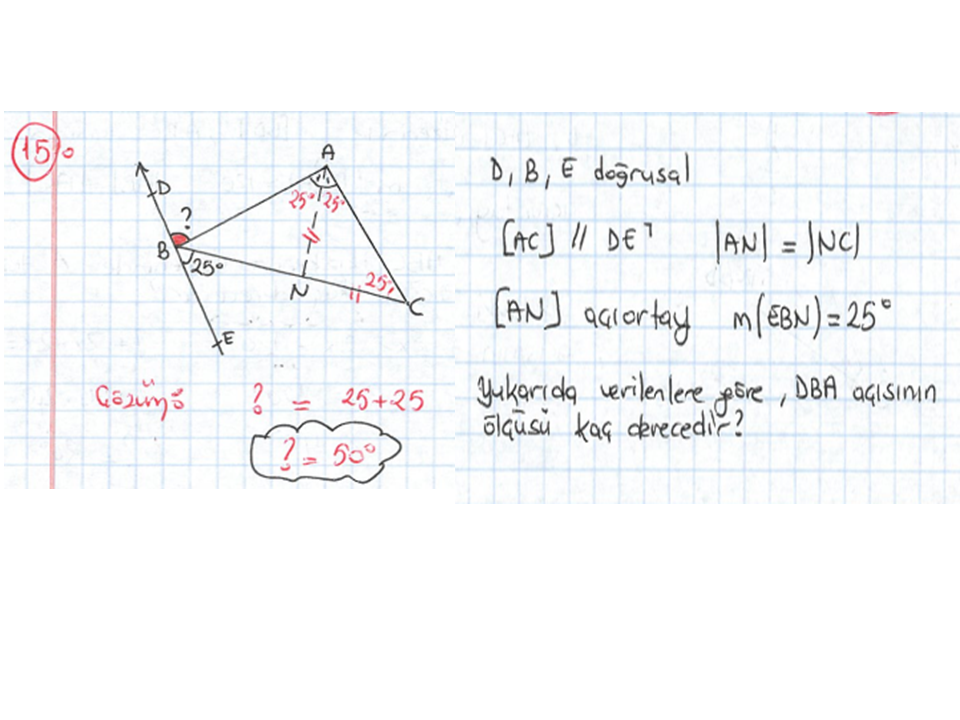 15)°
A
D
?
25° 25°
B
25°
N
25°
C
E
Çözüm: ? = 25+25
? = 50°
D, B, E doğrusal
[AC] // DE |AN| = |NC|
[AN] açıortay m(EBN) = 25°
Yukarıda verilenlere göre, DBA açısının
ölçüsü kaç derecedir?